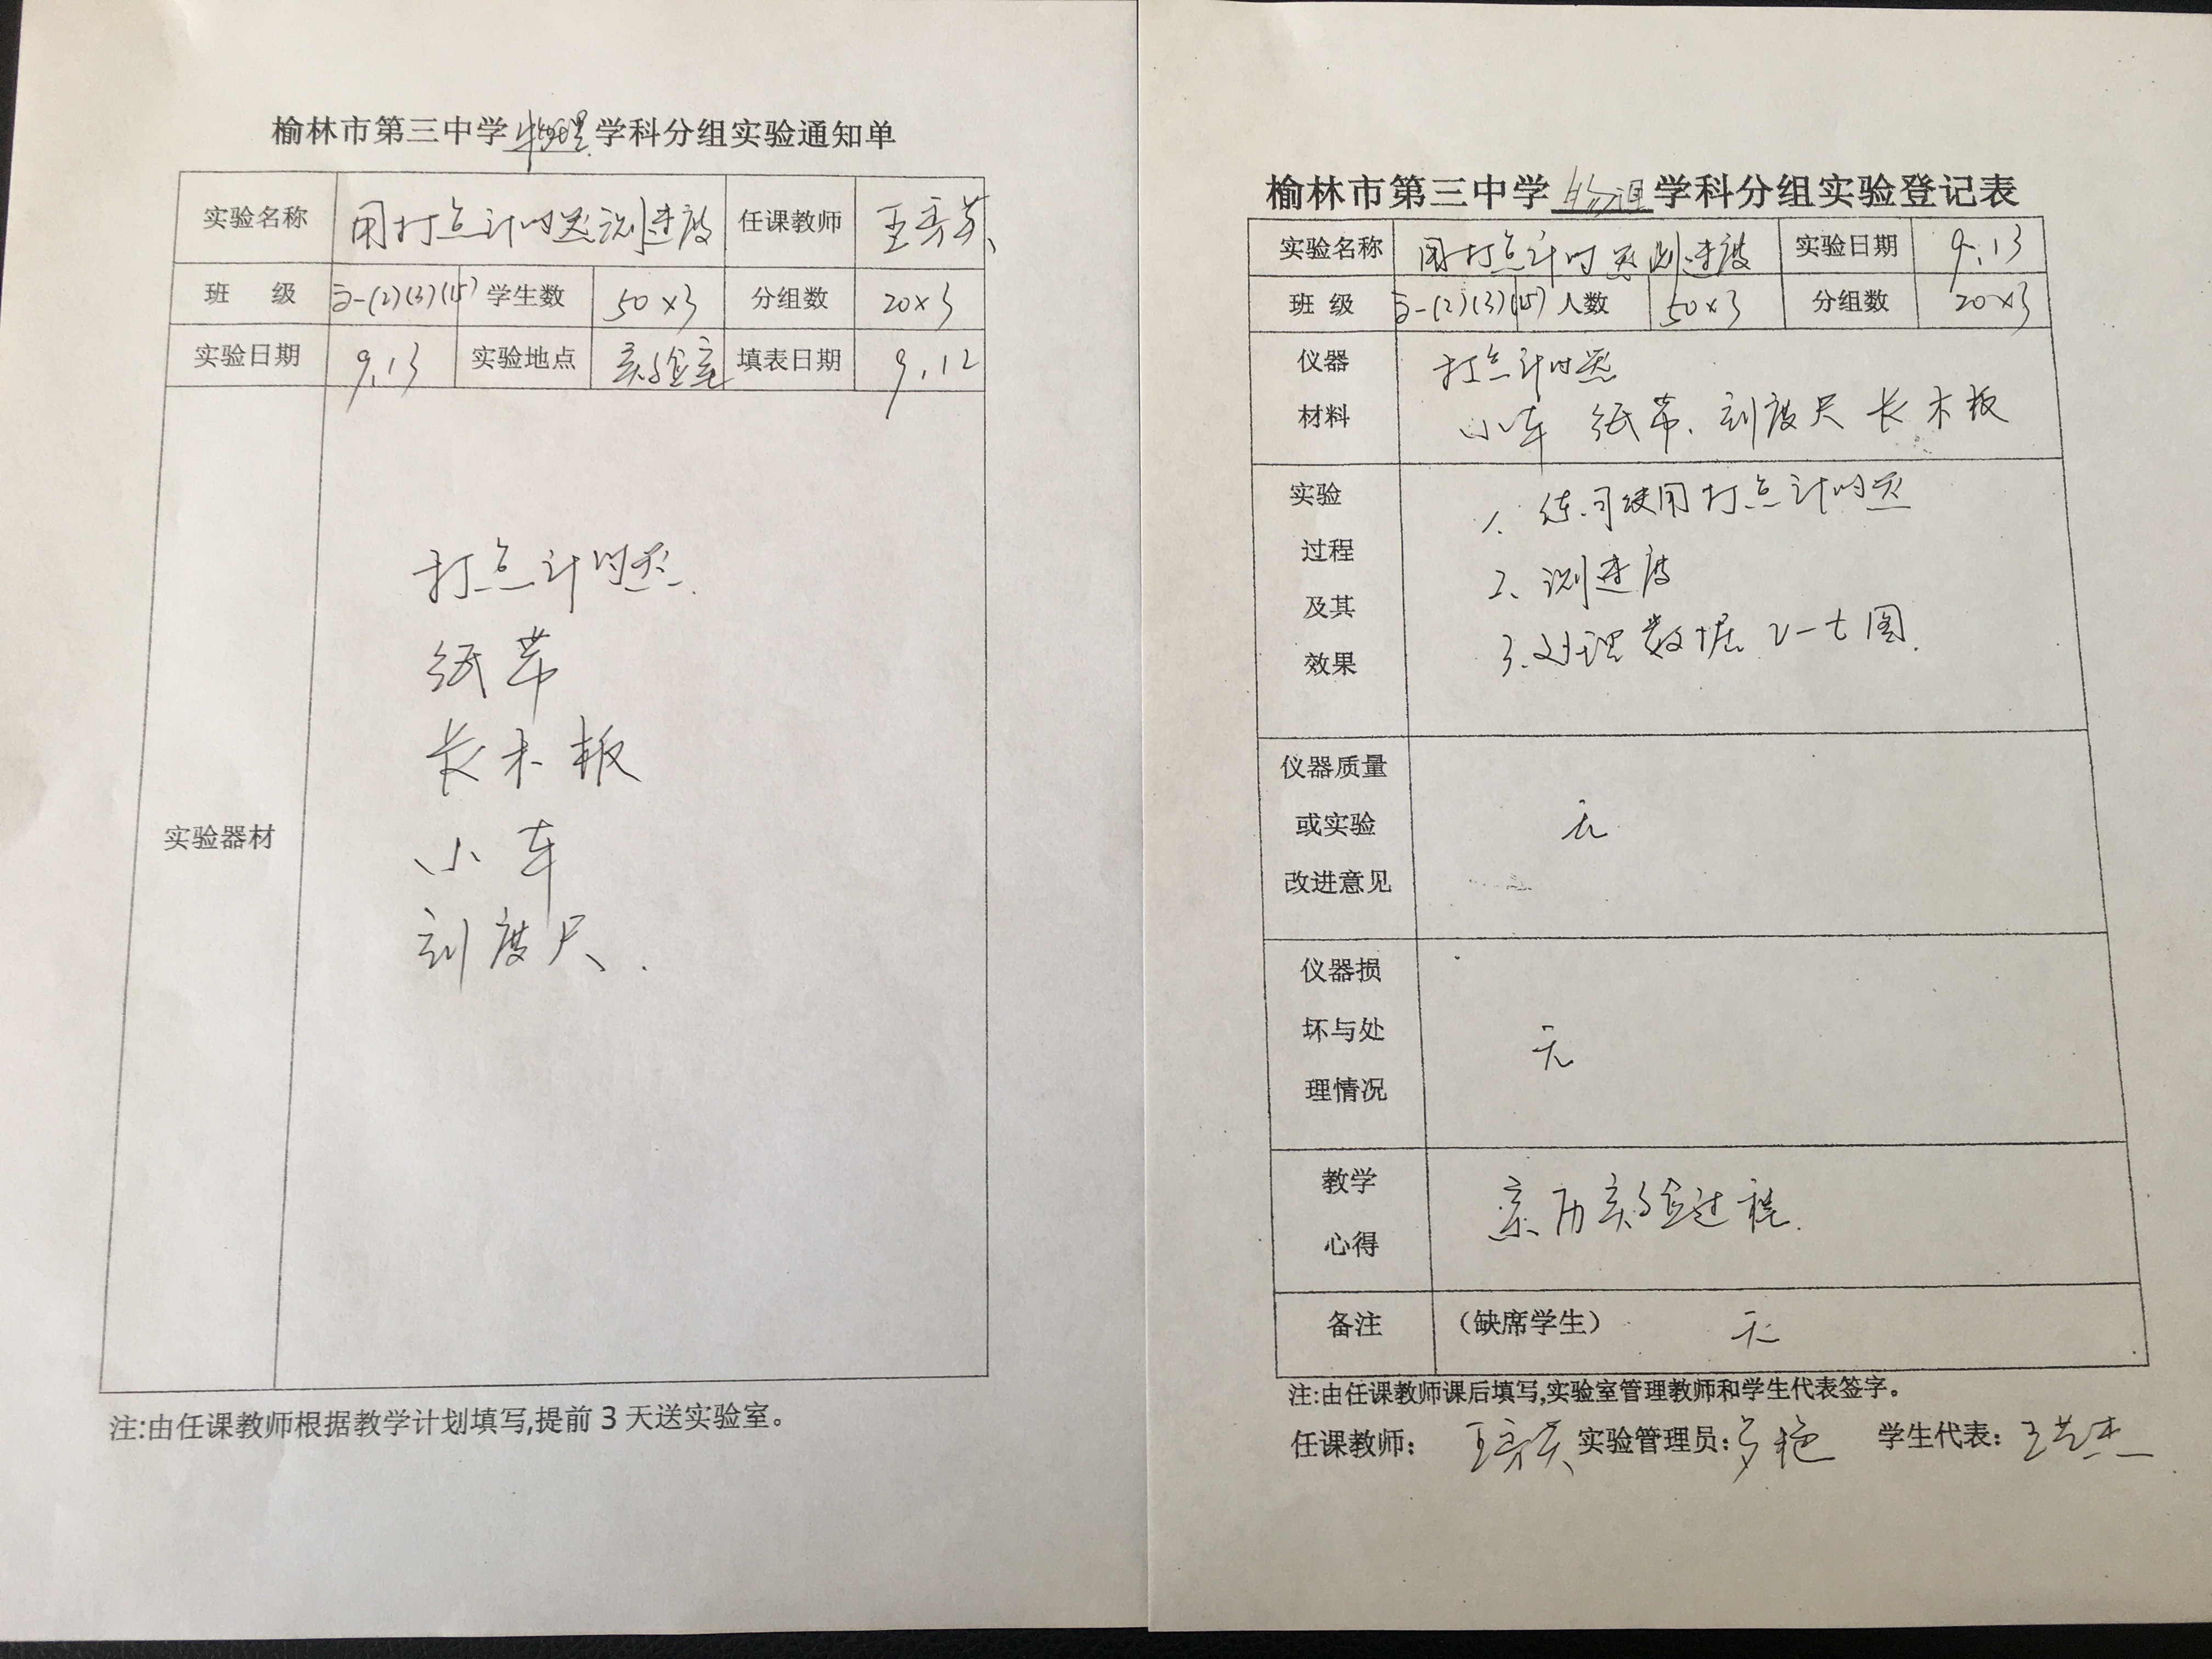 榆林市第三中学物理学科分组实验通知单
实验名称 用打点计时器测速度 任课教师 王秀英
班 级 高一(2)(3)(15) 学生数 50×3 分组数 20×3
实验日期 9.13 实验地点 实验室 填表日期 9.12
实验器材
打点计时器
纸带
长木板
小车
刻度尺.
注:由任课教师根据教学计划填写,提前3天送实验室。
榆林市第三中学物理学科分组实验登记表
实验名称 用打点计时器测速度 实验日期 9.13
班 级 高一(2)(3)(15) 人数 50×3 分组数 20×3
仪器 打点计时器
材料 小车 纸带、刻度尺 长木板
实验 1. 练习使用打点计时器
过程 2、测速度
及其 3.处理数据 v-t图.
效果
仪器质量
或实验 无
改进意见
仪器损
坏与处 无
理情况
教学 亲历实验过程.
心得
备注 (缺席学生) 无
注:由任课教师课后填写,实验室管理教师和学生代表签字。
任课教师: 王秀英 实验管理员: 学生代表: 王